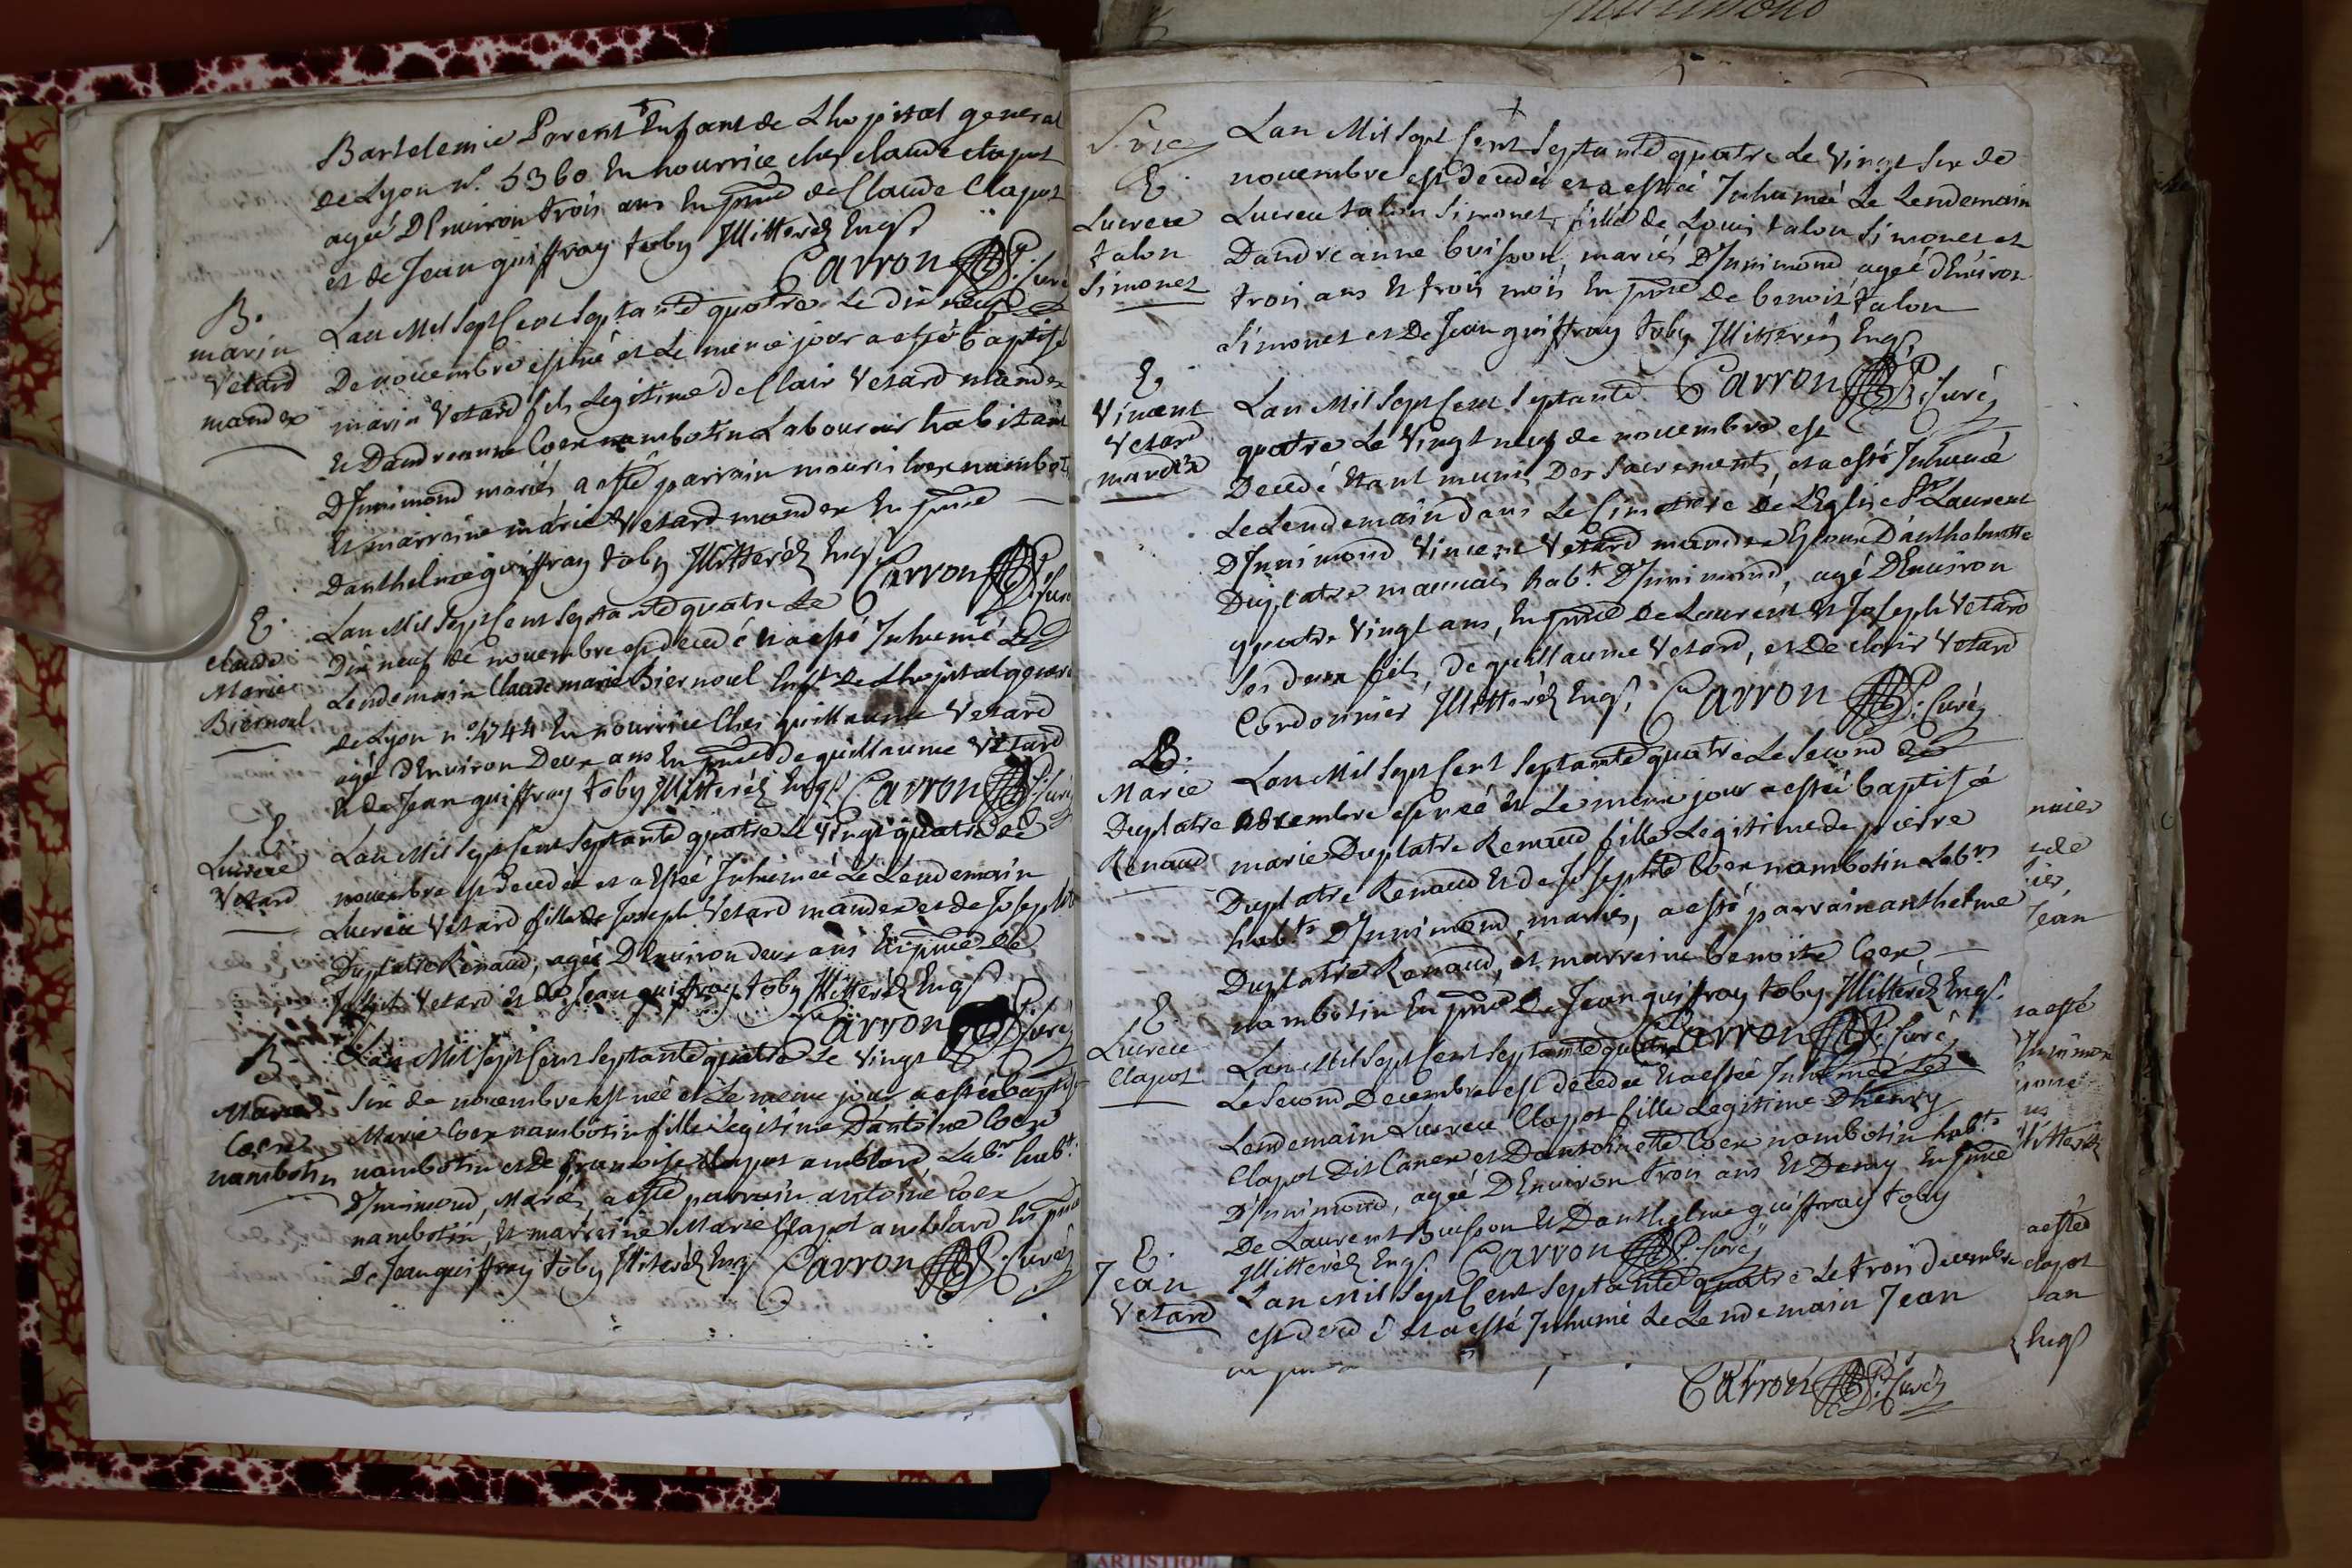 Bartelemie Parent Enfant de Lhopital general
de Lyon n°. 5360 En nourrice ches claude clapot
ageé DEnviron trois ans En pnce de Claude Clapot
et de Jean guiffray toby Illitteréz Enqs
Carron P: Curé
B.
marin
Vetard
mandex
Lan Mil Sept Cent Septante quatre Le dix neuf de
De novembre est né et Le meme jour a esté baptisé
marin Vetard fils Legitime de Clair Vetard mandex
Et Dandreanne Coex nambotin Laboureur habitant
DInnimond mariés, a esté parrain mouris Coex nambot
Et marraine marie Vetard mandex En pnce
Danthelme guiffray toby Illitteréz Enqs
Carron P: Curé
E.
claude
Marie
Biernoel
Lan Mil Sept Cent Septante quatre Le
Dix neuf de novembre est decedé Et a esté Inhumé Le
Lendemain Claude marie Biernoel Enft De Lhopital gener
de Lyon n° 4744 En nourrice Ches guillaume Vetard
agé DEnviron Deux ans En pnce de guillaume Vetard
Et de Jean guiffray toby Illitteréz Enqs Carron P: Curé
E.
Lucrece
Vetard
Lan Mil Sept Cent Septante quatre Le Vingt quatre de
novembre est decedeé et a Esteé Inhumeé Le Lendemain
Lucrece Vetard fille de Joseph Vetard mandex et de Josephte
Duplatre Renaud, ageé DEnviron deux ans En pnce de
Joseph Vetard Et de Jean guiffray toby Illitteréz Enqs
Carron P: Curé
B.
Marie
Coex
nambotin
Lan Mil Sept Cent Septante quatre Le Vingt
Six de novembre est neé et Le meme jour a esteé bapti
Marie Coex nambotin fille Legitime Dantoine Coex
nambotin et de francoise Clapot amblard Labr habt
DInnimond, Mariés, a esté parrain antoine Coex
nambotin, Et marraine Marie Clapot amblard En pnce
De Jean guiffray toby Illiteréz Enqs Carron P: Curé
E.
Lucrece
talon
Simonet
Lan Mil Sept Cent Septante quatre Le Vingt Six de
novembre est decedeé et a esteé Inhumeé Le Lendemain
Lucrece talon Simonet, fille de Louis talon Simonet et
Dandreanne buisson mariés DInnimond ageé dEnviron
trois ans Et trois mois En pnce De benoit talon
Simonet et De Jean guiffray toby Illitteréz Enqs
Carron P: Curé
E.
Vincent
Vetard
mandex
Lan Mil Sept Cent Septante
quatre Le Vingt neuf de novembre est
Decedé Etant muni Des Sacrements, et a esté Inhumé
Le Lendemain dans Le Cimetiere De LEglise St Laurent
DInnimond Vincent Vetard mandex Epoux Danthelmette
Duplatre mauvais habt. DInnimond, agé DEnviron
quatre Vingt ans, En pnce de Laurent Et Joseph Vetard
Ses deux fils, De guillaume Vetard, et De clair Vetard
Cordonnier Illitteréz Enqs, Carron P: Curé
B.
Marie
Duplatre
Renaud
Lan Mil Sept Cent Septante quatre Le Second de
decembre est neé Et Le meme jour a esteé baptiseé
marie Duplatre Renaud fille Legitime de pierre
Duplatre Renaud Et de Josephte Coex nambotin Labrs
habts DInnimond, mariés, a esté parrain anthelme
Duplatre Renaud, et marraine benoite Coex,
nambotin En pnce De Jean guiffray toby Illitteréz Enqs.
Carron P: Curé
E.
Lucrece
Clapot
Lan Mil Sept Cent Septante quatre
Le Second Decembre est decedeé Et a esteé Inhumeé Le
Lendemain Lucrece Clapot fille Legitime Dhenry
Clapot Dit Canex et Dantoinette Coex nambotin habts
DInnimond, ageé DEnviron trois ans Et Demy En pnce
De Laurent Buisson Et Danthelme guiffray toby
Illitteréz Enqs. Carron P: Curé
E.
Jean
Vetard
Lan Mil Sept Cent Septante quatre Le trois decembre
est decedé et a esté Inhumé Le Lendemain Jean
Carron P: Curé
Jean
a esté
a esteé
clapot
Enqs
ARTISTIQUE